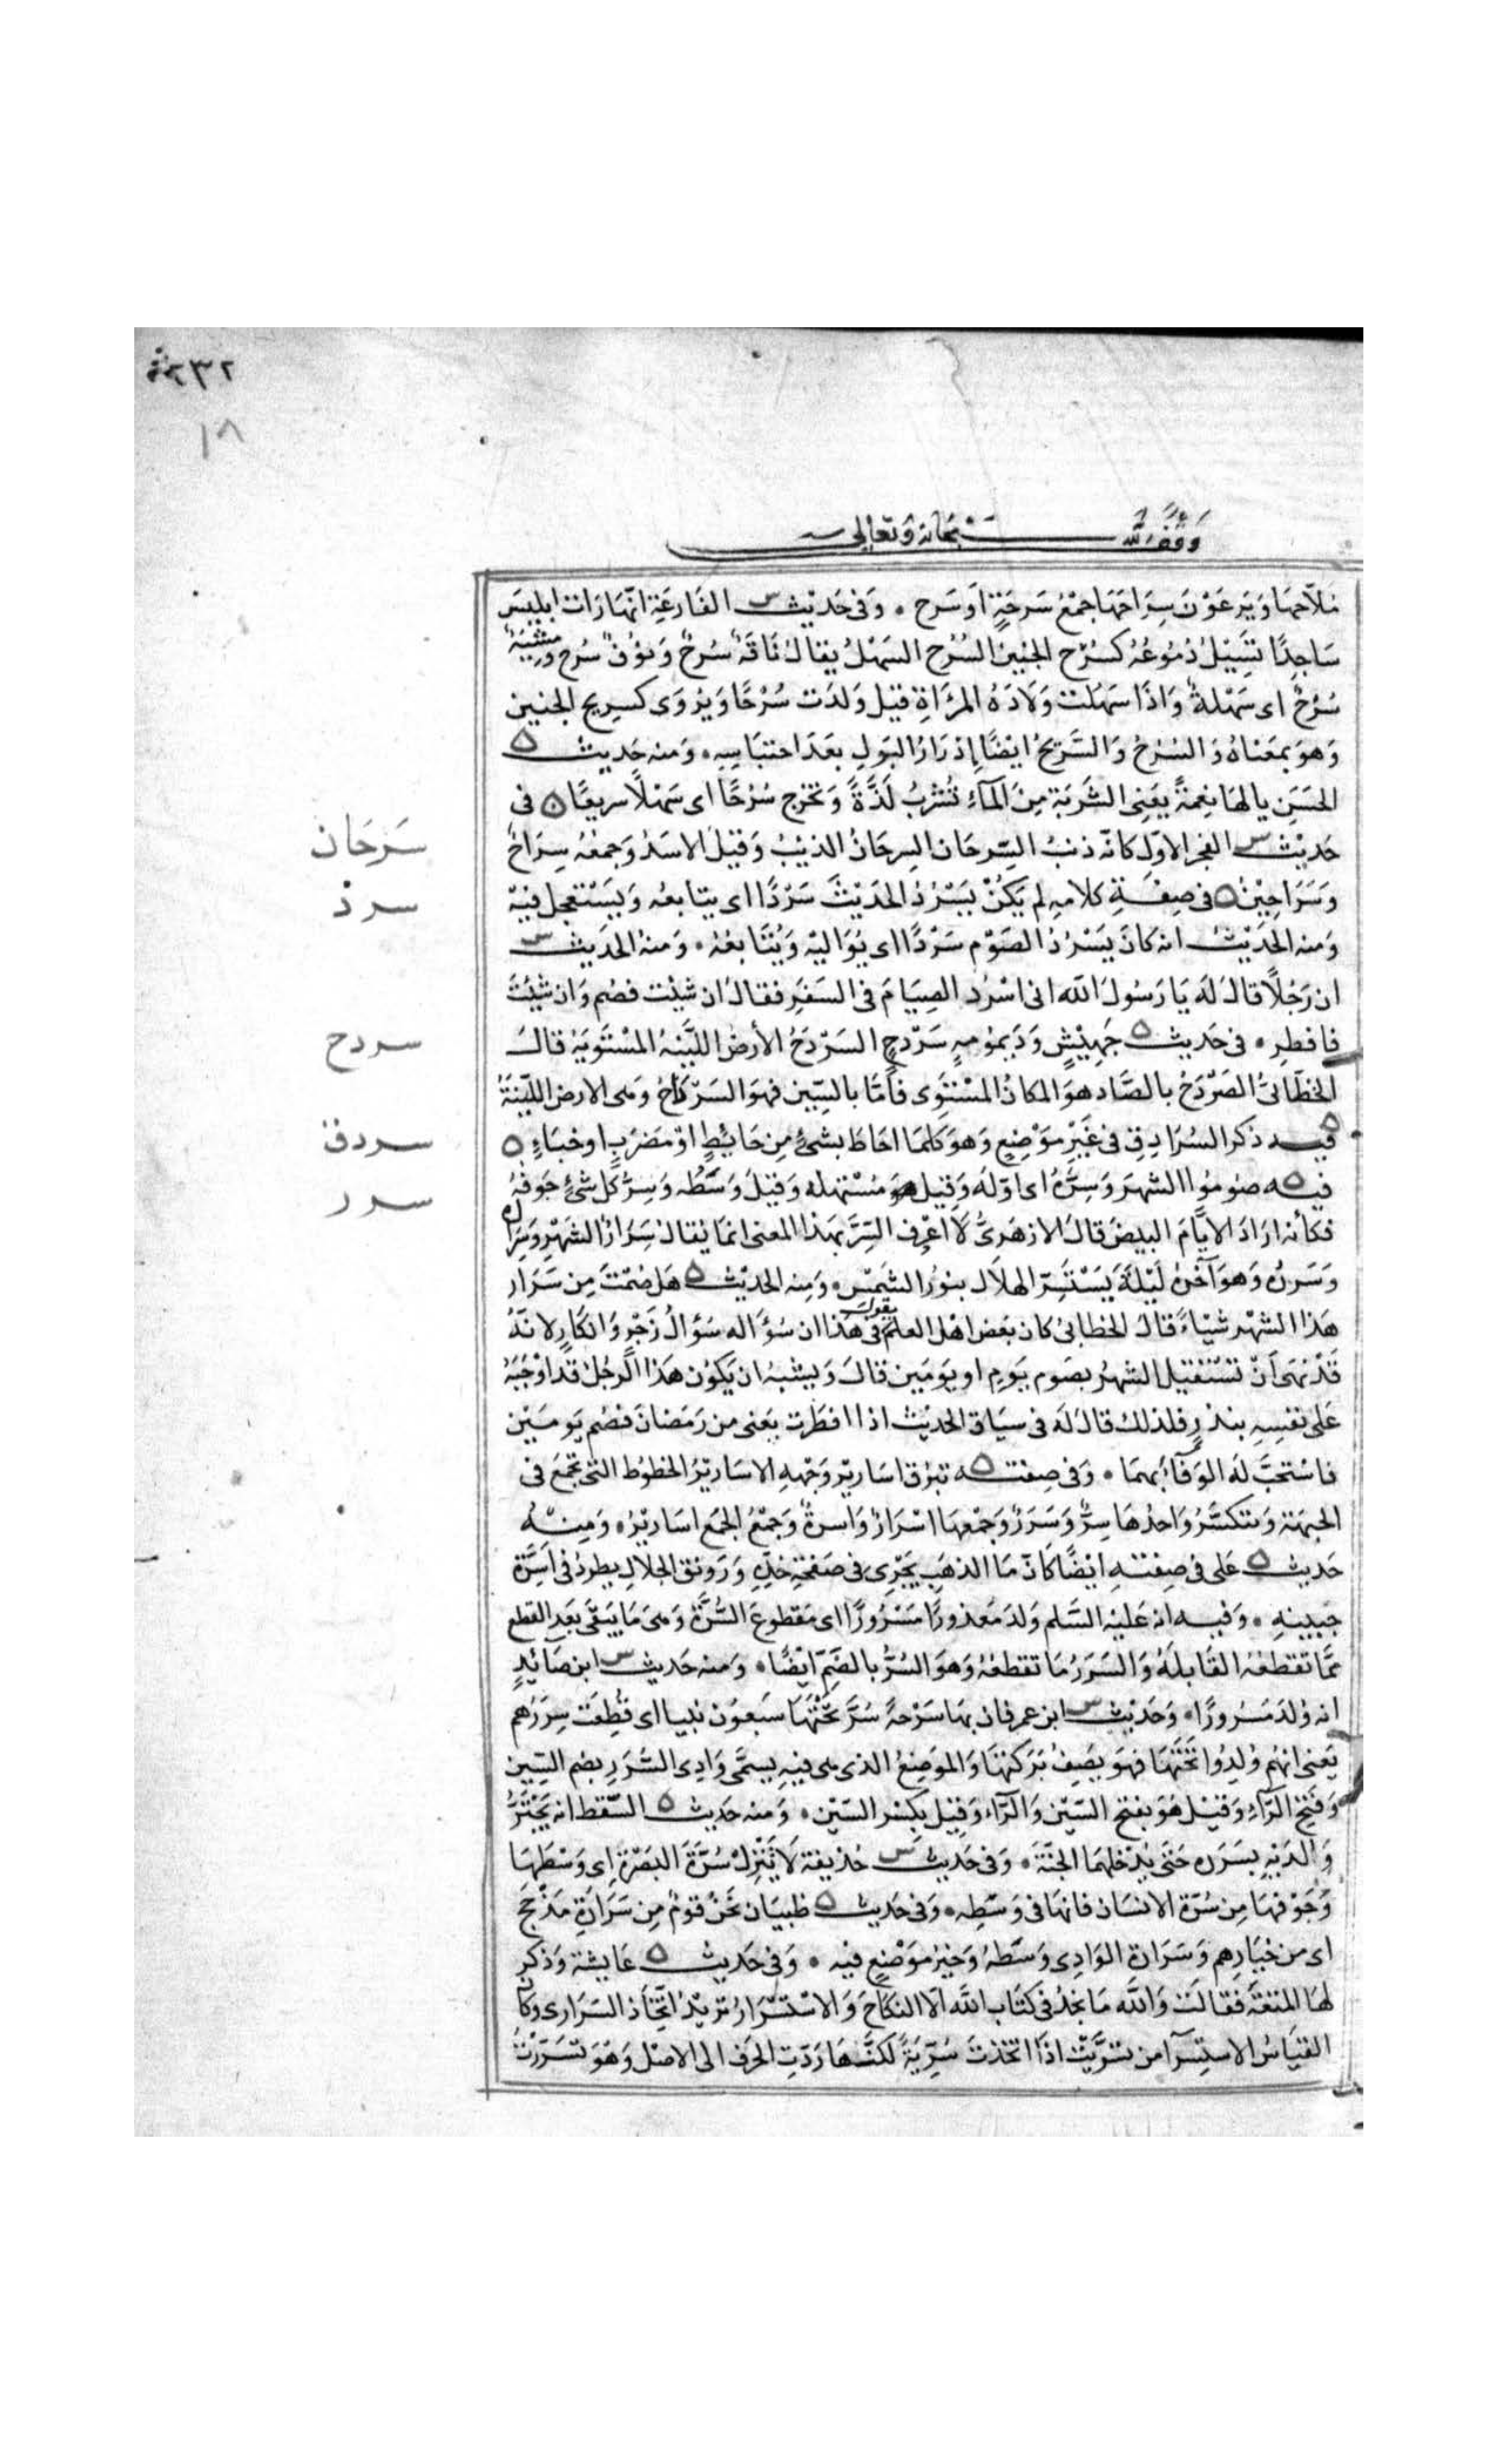 ٢٣٢
١٨
وقف لله سبحانه وتعالى
مُلَاحَهَا وَيَرعَوْنَ سِرَاحَهَا جَمْعُ سَرحَةٍ اوسَرح ٠ وَفى حَديْث س الفَارعَةِ انّهَا رَات ابليسَ
سَاجِدًا تسِيْلُ دُمُوعُهُ كسُرُح الجنينِ السُرُح السَهْلُ يقالُ نَاقَةٌ سُرحٌ وَنوُقٌ سُرح ومِشيَةٌ
سُرُحٌ اى سَهْلةٌ وَاذا سَهُلت وَلادَة المرْاَةِ قيل وَلدَت سُرُحًا وَيُروَى كسريح الجنين
وَهوَ بمعَنَاهُ وَالسُرحُ وَالسَّريحُ ايضًا إدرَارُ البَولِ بعَدَ احتبَاسِهِ ٠ وَمنه حَديث ه
الحسَنِ يا لهَا نِعمَةً يعَنِى الشَربَةَ مِنَ المآءِ تُشرَبُ لَذَّةً وَتخرج سُرُحًا اى سَهْلًا سريعًا ه فى
حَديْث س الفجر الاوّل كانّه ذنبُ السّرحَان السِرحَانُ الذيبُ وَقيْلَ الاسَدُ وَجمعُه سِرَاحٌ
سَرحَان
وَسَرَاحِيْنُ ه فى صِفَةِ كلامهِ لم يَكُنْ يَسْرُدُ الحَديْثَ سَرْدًا اى يتَابعُه وَيَسْتَعجل فيْه
سرد
وَمنه الحَدَيْث انه كانَ يَسْرُدُ الصَوْم سَرْدًا اى يُوَاليْه وَيُتَابعُهُ ٠ وَمنهُ الحَديث س
ان رَجُلًا قالَ لَه يَا رَسُولَ الله انى اسْرُد الصِيَامَ فى السَفَرِ فقالَ ان شيْت فصُم وَان شيْتَ
فافطِر ٠ فى حَديث ه جَهِيْشٍ وَدَيموُمَهٍ سَرْدحٍ السَرْدَحُ الأرضُ اللَّيّنَهُ المسْتَويَهُ قالَ
سردح
الخطّابىُّ الصَرْدَحُ بالصَّاد هوَ المكانُ المسْتَوِى فامَّا بالسِّين فهوَ السَرْدَاحُ وَهى الارض اللّيّنَةُ
ه فيه ذكر السُرَادِقِ فى غَيْرِ مَوْضِعٍ وَهوَ كلمَا احَاطَ بشئٍ مِن حَايُطٍ اوْ مَضرَبٍ او خبَاءٍ ه
سردق
فيه ه صُومُوا الشهرَ وَسِرَّهُ اى اوّلَهُ وَقِيل هوَ مُسْتهلهُ وَقيْلَ وَسَطُه وَسِرُّ كلِّ شئٍ جَوفُهُ
سرر
فكأنه ارَادَ الايَّامَ البيضَ قالَ الازهَرىُّ لَا اعْرِف السِّرَّ بهَذا المعنى انمَا يُقالُ سَرَارُ الشَهْرِ وَسِرَارُه
وَسَرَرُه وَهوَ آخرُ لَيْلَةٍ يَسْتَسِرّ الهلَال بنوُر الشمَسْ ٠ وَمِنه الحديْث ه هَل صُمْتَ مِن سَرَار
هَذا الشهْر شيْاءً قالَ الخطابىُّ كان بعَض اهْل العلم يقول فى هذا ان سُؤَاله سُؤَالُ زَجْرٍ وَانكارٍ لانَّهُ
قَدْ نهَى اَنْ تسْتَقْبل الشهرُ بصَوم يَومٍ او يَومَين قالَ وَيشبهُ ان يَكُون هَذا الرجُلُ قد اوْجَبَهُ
عَلى نفسِهِ بنذرٍ فلذلك قالَ لَه فى سيَاق الحَديْث اذا افطرت يعَنى من رَمَضانَ فصُم يَومَيْنِ
فاسْتحَبَّ لَهُ الوَفآءَ بهمَا ٠ وَفى صِفته ه تبرُق اسَاريْر وَجْههِ الاسَاريْرُ الخطوُط التى تجمَع فى
الجبهَة وَتتكسّرُ وَاحدُهَا سِرٌّ وَسَرَرٌ وَجَمْعهَا اسْرَارٌ وَاسِرةٌ وَجَمْعُ الجمَع اسَاريْرُ ٠ وَمِنْهُ
حَديث ه على فى صِفتهِ ايْضًا كَانّ مَا الذهَبِ يَجْرِى فى صَفحَةِ خدّهِ وَرَونق الجلالِ يطردُ فى اَسِرَّةِ
جَبينهِ ٠ وَفيه انه عَليْه السَّلم وُلدَ مَعذورًا مَسْرُورًا اى مَقطوعَ السُّرَّة وَهىَ مَا يَبقَى بعَد القطع
ممّا تقطعُه القَابلَهُ وَالسَرَرُ مَا تقطعُهُ وَهوَ السُرُّ بالضَمِّ ايْضًا ٠ وَمنه حَديث س ابن صَائدٍ
انه وُلدَ مَسْرُورًا ٠ وَحَديْث س ابن عمر فان بهَا سَرْحةً سُرَّ تحْتَهَا سَبعوُن نبيا اى قُطِعَت سِرَرُهم
يَعنى انهُم وُلِدُوا تَحْتَهَا فهوَ يصَفُ بَرَكتهَا وَالموضِعُ الذى هى فيْهِ يسمَّى وَادِى السُّرَرِ بضم السِّين
وَفتح الرَّآءِ وَقيْل هُوَ بفتح السّيْن وَالرّآءِ وَقيل بكسْر السّيْن ٠ وَمنه حَديث ه السّقط انه يَجْتَرُّ
وَالدَيْهِ بسَرَره حَتى يُدْخلهمَا الجنَّةَ ٠ وَفى حَديث س حُذيفة لَا تَنْزِلْ سُرَّةَ البَصْرَةِ اى وَسْطهَا
وَجَوْفهَا مِن سُرّة الانسَان فانهَا فى وَسَطِه ٠ وَفى حَديث ه ظبيَان نحَنُ قومٌ مِن سَرَارَةِ مَذْحِجَ
اى من خيَارِهم وَسَرَارة الوَادِى وَسَطهُ وَخيرُ مَوْضعٍ فيْه ٠ وَفى حَديث ه عَايشة وَذكر
لهَا المتعَةَ فقالَت وَالله مَا نجدُ فى كتَاب الله الّا النكاحَ وَالاسْتسْرَارُ تريْدُ اتّخَاذ السَرَارى وكان
القيَاسُ الاستِسرآ من تسَرَّيْت اذَا اتخذتَ سُرِّيَةً لكنَّهَا رَدّتِ الحَرف الى الاصْل وَهوَ تسَرَّرْتُ